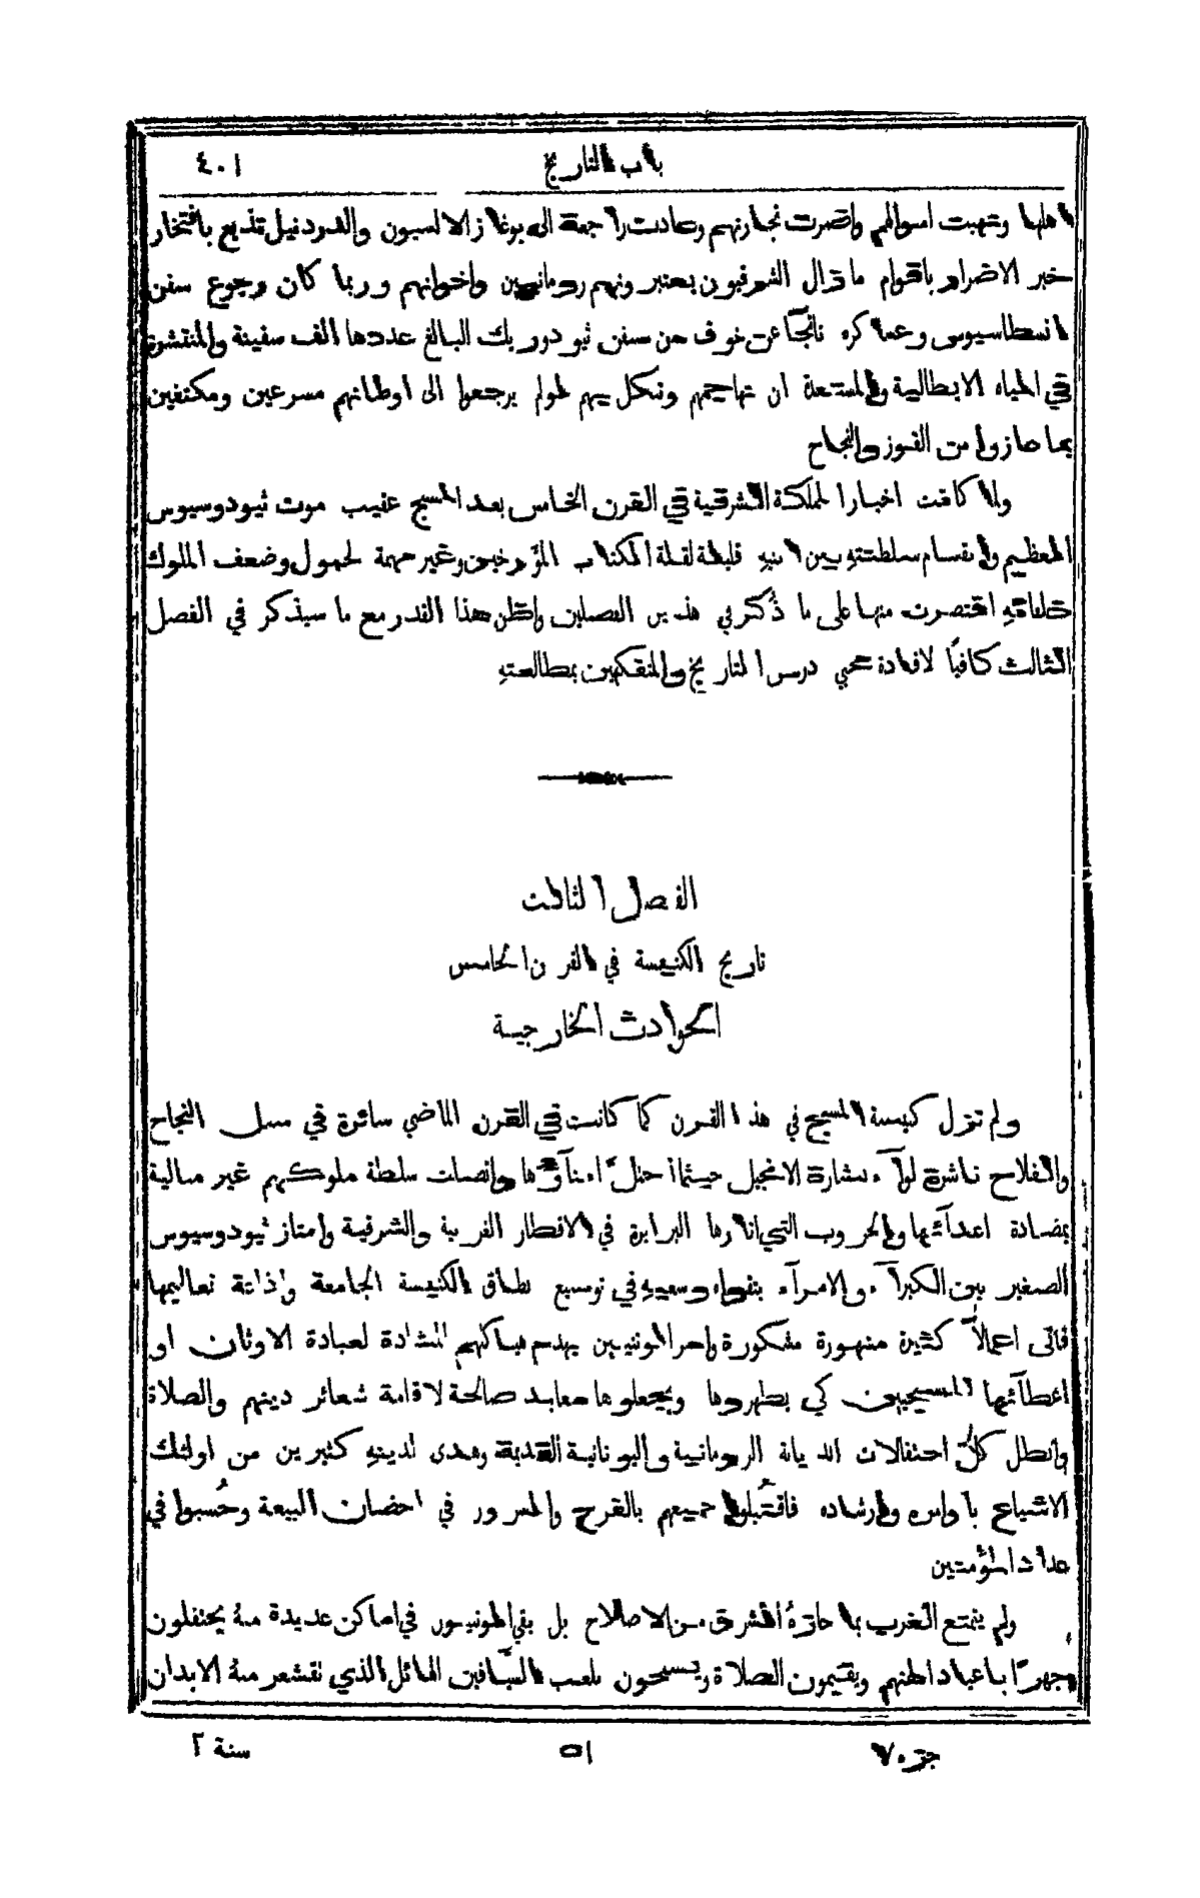 باب التاريخ ٤٠١
اهلها ونهبت اموالهم واضرت تجارتهم وعادت راجعة الى بوغاز الالسبون والدردنيل تذيع بافتخار
خبر الاضرار باقوام ما تزال الشرقيون يعتبرونهم رومانيين واخوانهم وربما كان رجوع سفن
انسطاسيوس وعساكره ناتجًا عن خوف من سفن ثيودوريك البالغ عددها الف سفينة والمنتشرة
في المياه الايطالية والمستعدة ان تهاجمهم وتنكل بهم لو لم يرجعوا الى اوطانهم مسرعين ومكتفين
بما حازوا من الفوز والنجاح
ولما كانت اخبار المملكة الشرقية في القرن الخامس بعد المسيح عقيب موت ثيودوسيوس
المعظم وانقسام سلطنته بين ابنيه قليلة لقلة الكتاب المؤرخين وغير مهمة لخمول وضعف الملوك
خلفائهِ اقتصرت منها على ما ذُكر في هذين الفصلين واظن هذا القدر مع ما سيذكر في الفصل
الثالث كافيًا لافادة محبي درس التاريخ والمتفكهين بمطالعتهِ
الفصل الثالث
تاريخ الكنيسة في القرن الخامس
الحوادث الخارجية
ولم تزل كنيسة المسيح في هذا القرن كما كانت في القرن الماضي سائرة في سبل النجاح
والفلاح ناشرة لوآء بشارة الانجيل حيثما احتلَّ ابنآؤها واتصلت سلطة ملوكهم غير مبالية
بمضادة اعدآئها والحروب التي اثارها البرابرة في الاقطار الغربية والشرقية وامتاز ثيودوسيوس
الصغير بين الكبرآء والامرآء بتقواه وسعيهِ في توسيع نطاق الكنيسة الجامعة واذاعة تعاليمها
فاتى اعمالاً كثيرة مشهورة مشكورة وامر الوثنيين بهدم هياكلهم المشادة لعبادة الاوثان او
اعطآئها المسيحيين كي يطهروها ويجعلوها معابد صالحة لاقامة شعائر دينهم والصلاة
وابطل كلَّ احتفالات الديانة الرومانية واليونانية القديمة وهدى لدينهِ كثيرين من اولئك
الاشياع باوامره وارشاده فاقتُبلوا جميعهم بالفرح والسرور في احضان البيعة وحُسبوا في
عداد المؤمنين
ولم يتمتع الغرب بما حازهُ الشرق من الاصلاح بل بقي الوثنيون في اماكن عديدة منهُ يحتفلون
جهرًا باعياد الهتهم ويقيمون الصلاة ويسبحون بلعب السيَّافين الهائل الذي تقشعر منهُ الابدان
جزء ٧ ٥١ سنة ٢